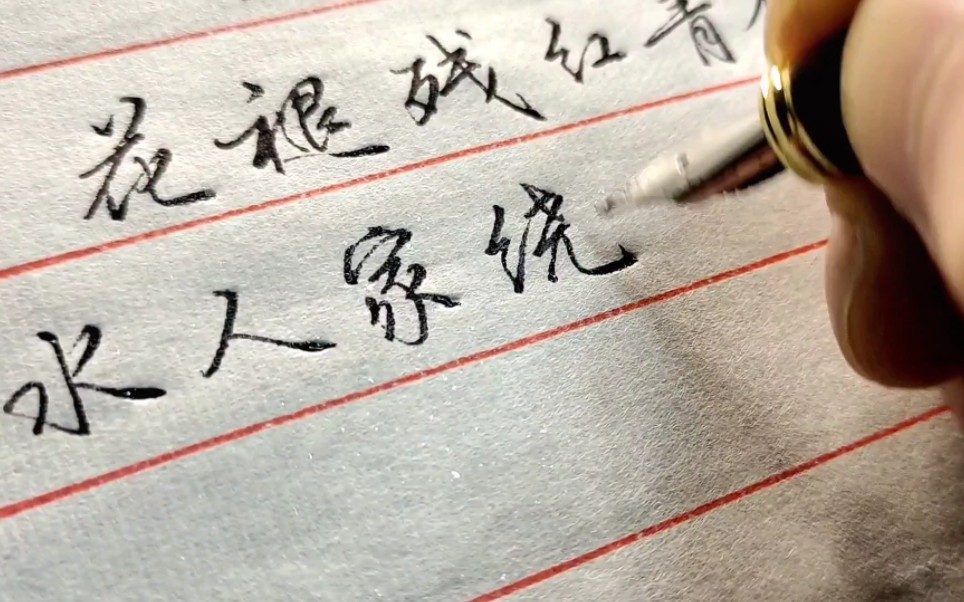 花褪残红青
水人家绕